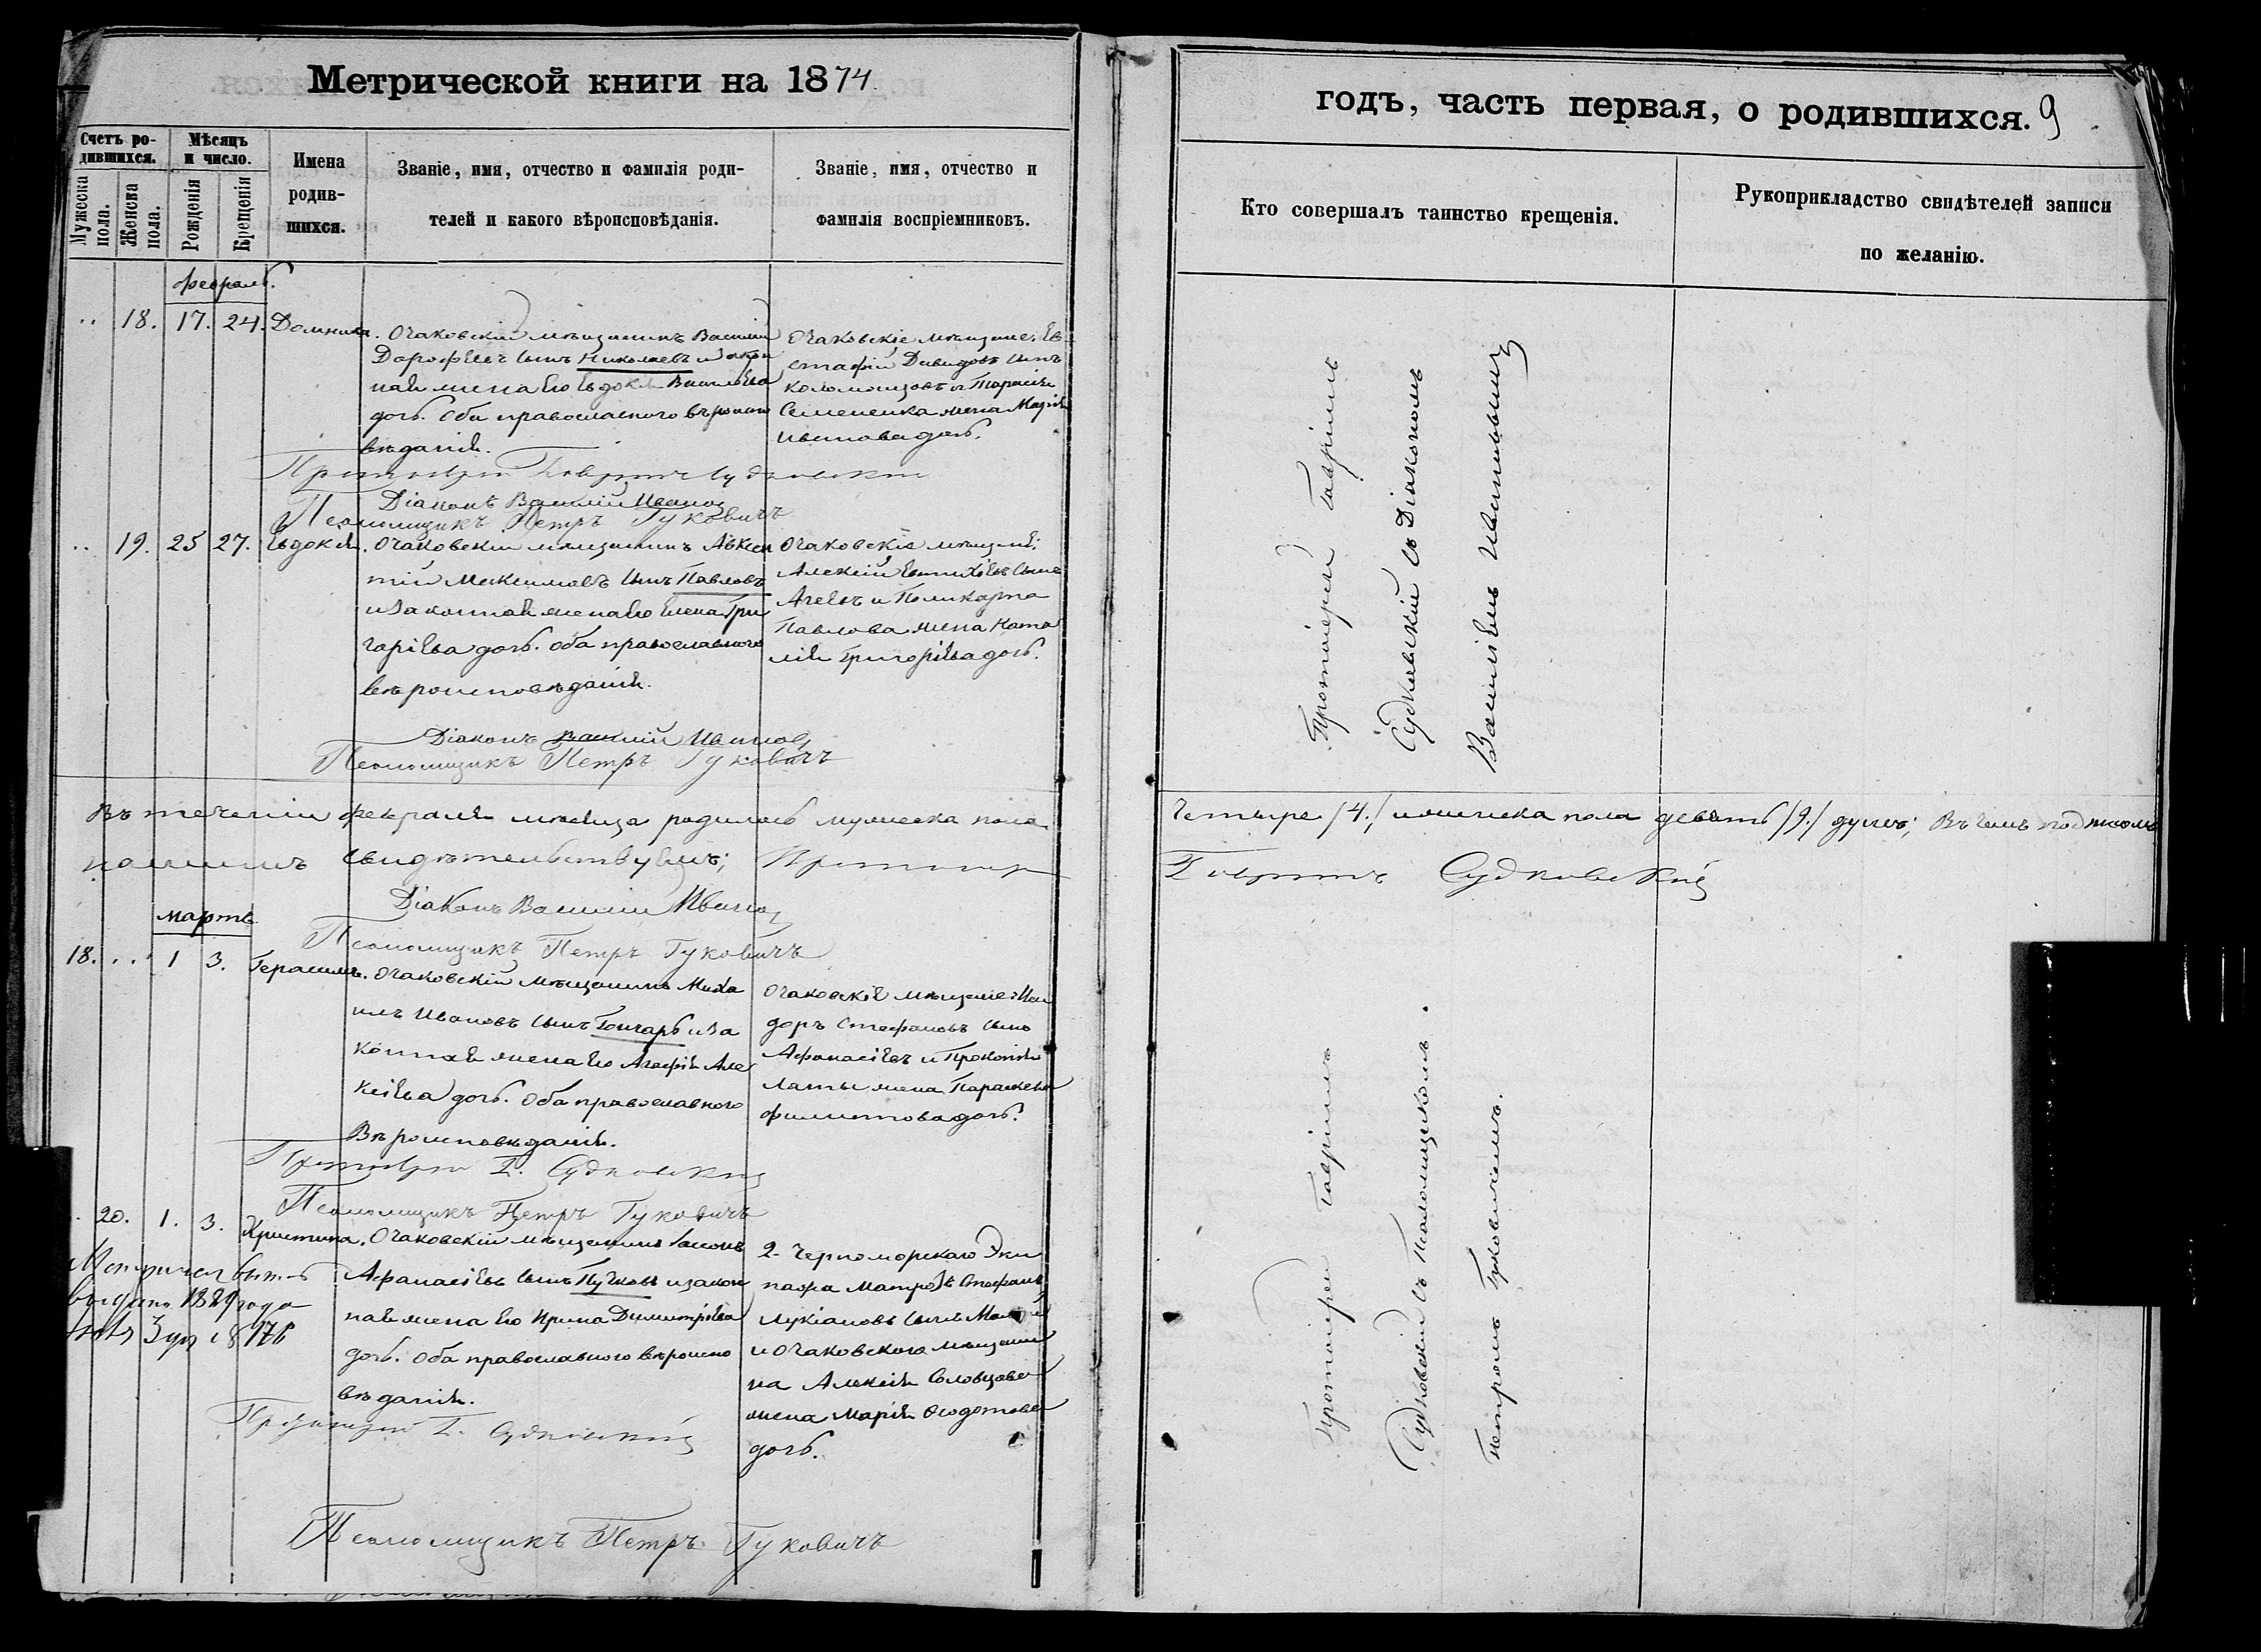 Метрической книги на 1874.
годъ, часть первая, о родившихся. 9
Счетъ родившихся.
Мужеска пола.
Женска пола.
Мѣсяцъ и число.
Рожденія
Крещенія
Имена родившихся.
Званіе, имя, отчество и фамилія родителей и какого вѣроисповѣданія.
Званіе, имя, отчество и фамилія воспріемниковъ.
Кто совершалъ таинство крещенія.
Рукоприкладство свидѣтелей записи по желанію.
Февраль.
.. 18. 17. 24. Домника.
Очаковскій мѣщанинъ Василій
Дорофеевъ сынъ Николаевъ и закон
ная жена его Евдокія Васильева
дочь. Оба православнаго вѣроиспо
вѣданія.
Очаковскіе мѣщане: Ев
стафій Давидовъ сынъ
Коломойцовъ и Тарасія
Семененка жена Марія
Иванова дочь.
Протоіерей Гавріилъ Судковскій
Діаконъ Василій Иванов
Псаломщикъ Петръ Гуковичъ
Протоіерей Гавріилъ
Судковскій съ Діакономъ
Василіемъ Ивановымъ
.. 19. 25 27. Евдокія.
Очаковскій мѣщанинъ Авксен
тій Максимовъ сынъ Павловъ
и законная жена его Елена Гри
горіева дочь. Оба православнаго
вѣроисповѣданія.
Очаковскіе мѣщане:
Алексій Евтихіевъ сынъ
Агеевъ и Поликарпа
Павлова жена Ната
лія Григоріева дочь.
Діаконъ Василій Иванов
Псаломщикъ Петръ Гуковичъ
Въ теченіи февраля мѣсяца родилось мужеска пола
четыре /4./ и женска пола девять /9./ душъ; Въ чемъ подписомъ
нашимъ свидѣтельствуемъ; Протоіерей
Гавріилъ Судковскій
Діаконъ Василій Иванов
Псаломщикъ Петръ Гуковичъ
Мартъ
18. .. 1 3. Герасимъ.
Очаковскій мѣщанинъ Миха
илъ Ивановъ сынъ Гончаръ и за
конная жена его Агафія Але
ксіева дочь. Оба православнаго
вѣроисповѣданія.
Очаковскіе мѣщане: Иси
доръ Стефановъ сынъ
Афанасіевъ и Прокопія
Латы жена Параскева
Филиппова дочь.
Протоіерей Г. Судковскій
Псаломщикъ Петръ Гуковичъ
Протоіерей Гавріилъ
Судковскій съ Псаломщикомъ
Петромъ Гуковичемъ.
20. 1. 3. Христина.
Очаковскій мѣщанинъ
Афанасіевъ сынъ Пучковъ и закон
ная жена его Ирина Димитріева
дочь. Оба православнаго вѣроиспо
вѣданія.
2. Черноморскаго Эки
пажа матросъ Стефанъ
Лукіановъ сынъ
и Очаковскаго мѣщани
на Алексія Соловцова
жена Марія Ѳеодотова
дочь.
выдано 1889 года
Протоіерей Г. Судковскій
Псаломщикъ Петръ Гуковичъ